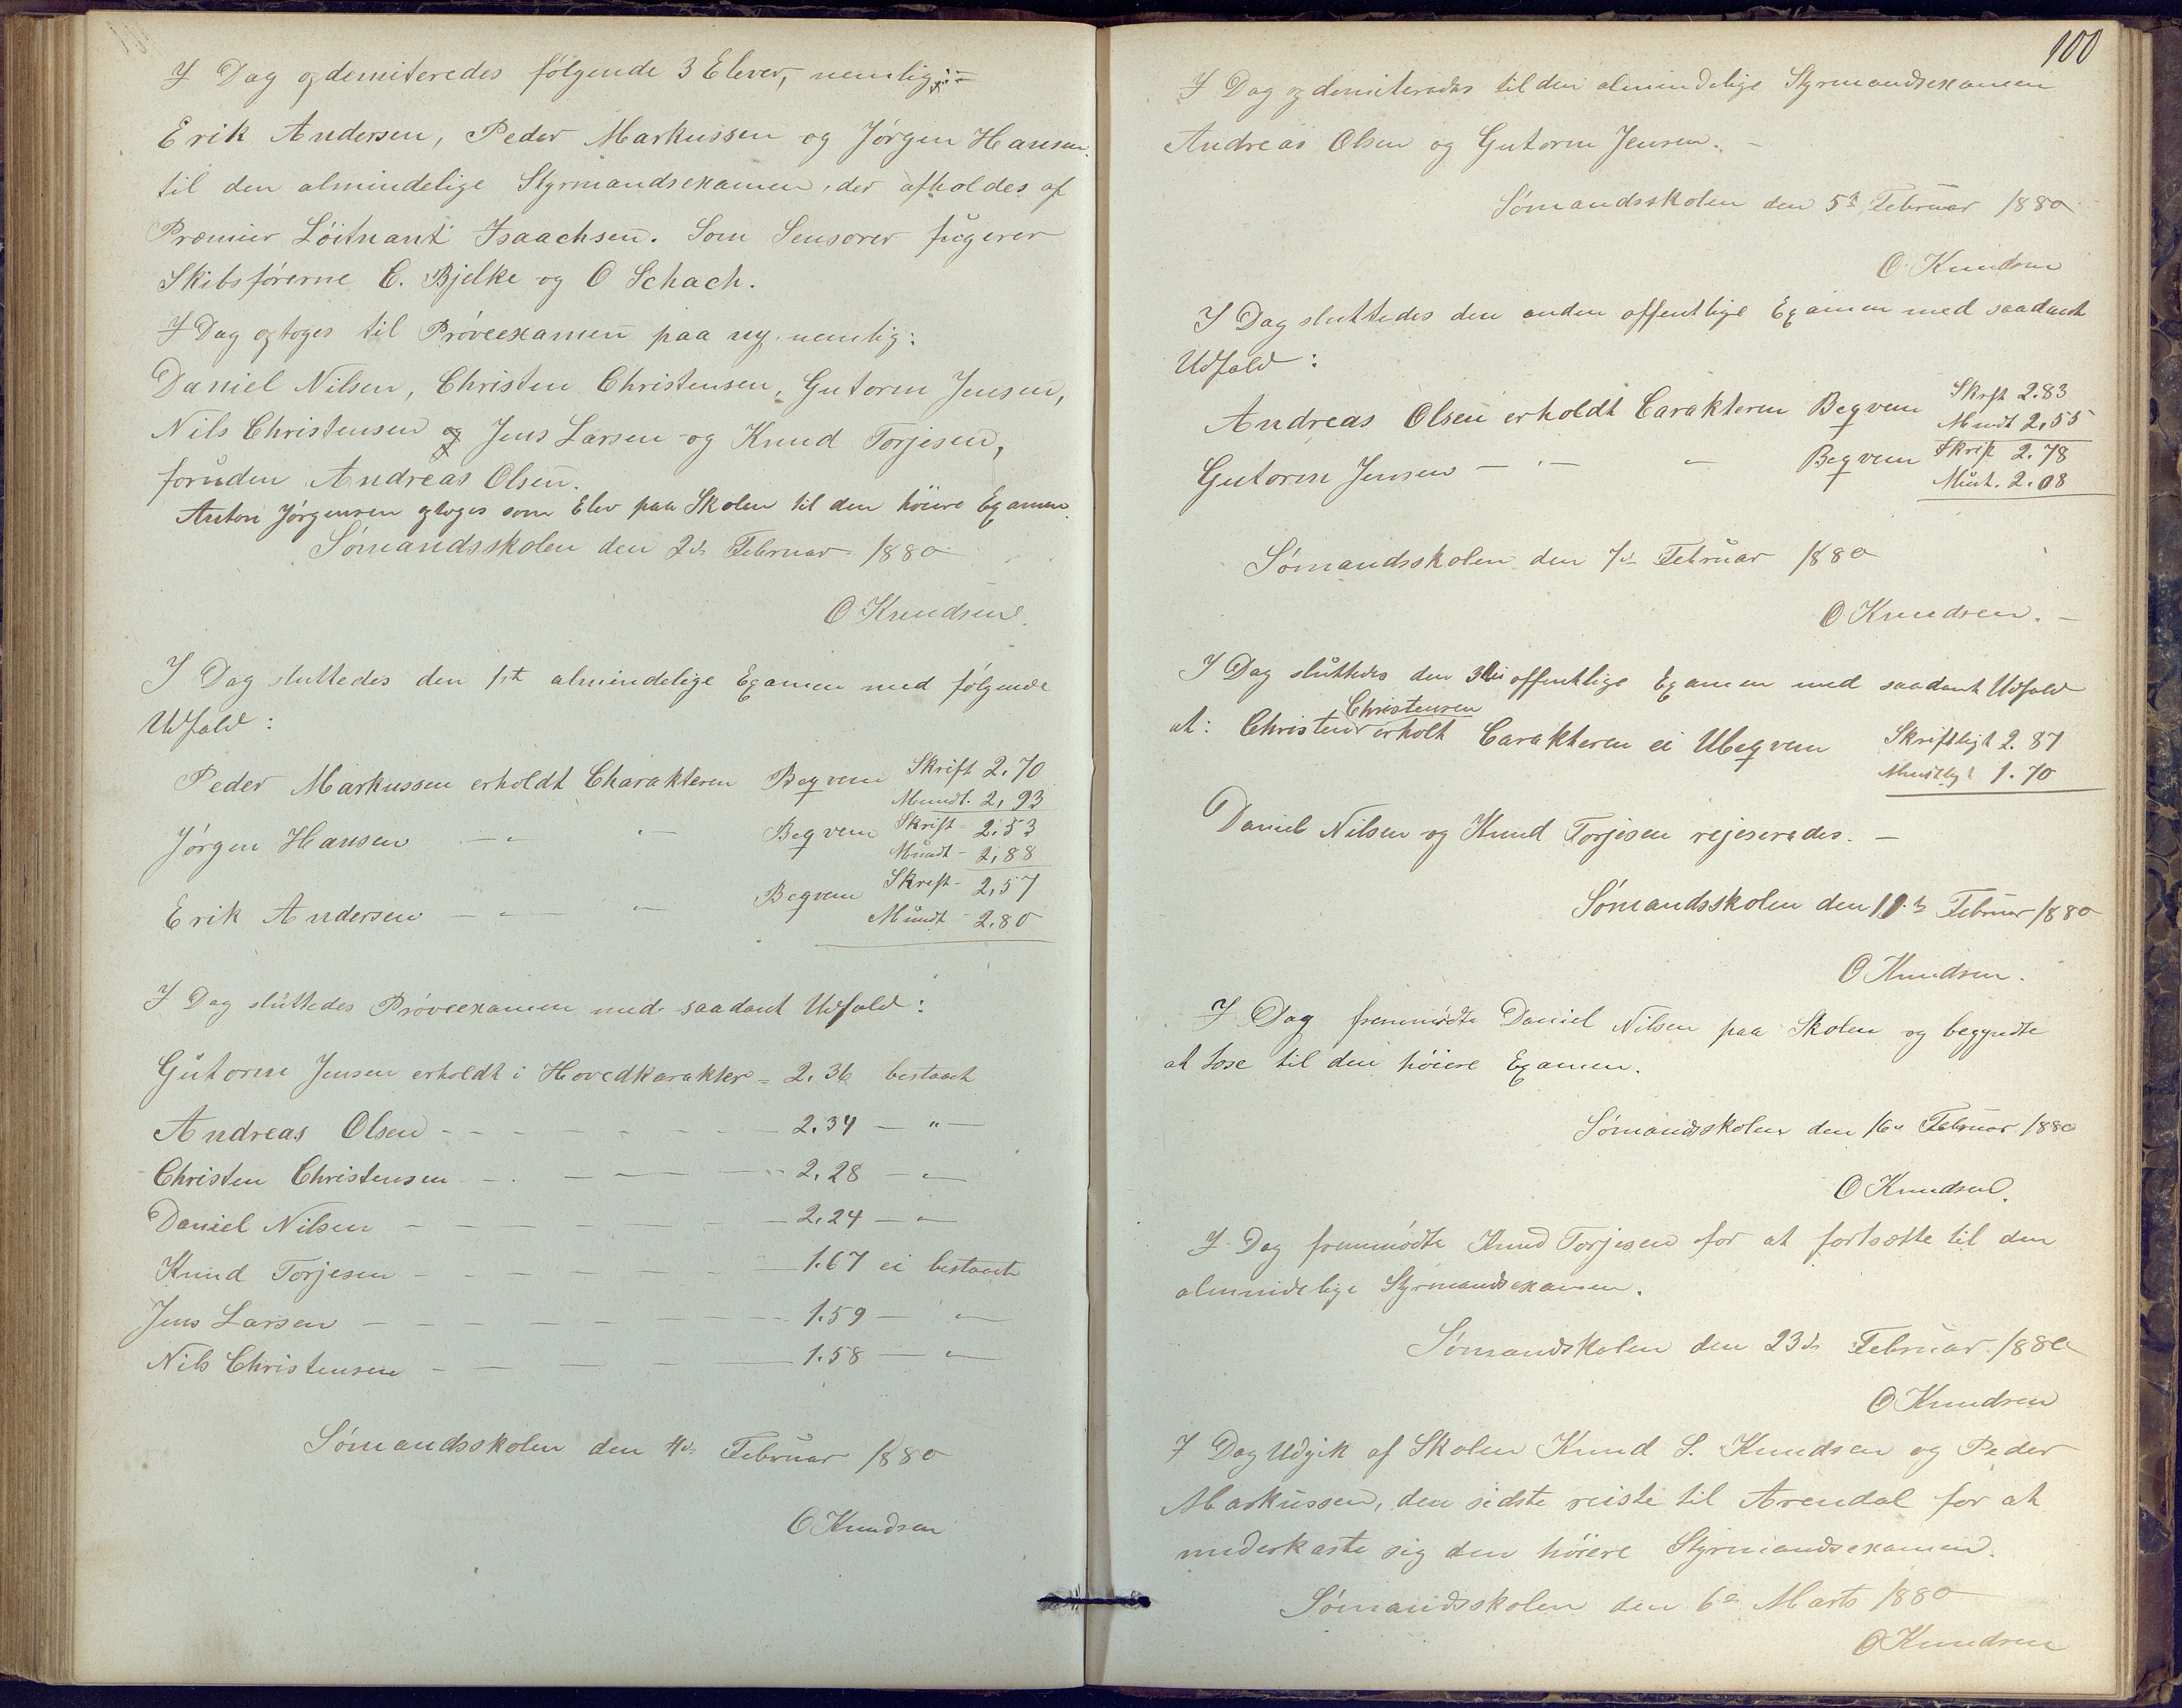 I Dag opdemiteredes følgende 3 Elever, nemlig:
Erik Andersen, Peder Markussen og Jørgen Hansen
til den almindelige Styrmandsexamen, der afholdes af
Præmier Löitnant Isaachsen. Som Sensorer fugerer
Skibsførerne C. Bjelke og O Schach.
I Dag optoges til Prøveexamen paa ny nemlig:
Daniel Nilsen, Christen Christensen, Gutorm Jensen,
Nils Christensen og Jens Larsen og Knud Torjesen,
foruden Andreas Olsen.
Anton Jørgensen optoges som Elev paa Skolen til den höiere Examen.
Sømandsskolen den 2d Februar 1880
O Knudsen.
I Dag sluttedes den 1st almindelige Examen med følgende
Udfald:
Peder Markussen erholdt Charakteren Beqvem Skrift 2.70
Mundt. 2,93
Jørgen Hansen — " — Beqvem Skrift - 2.53
Mundt - 2,88
Erik Andersen — " — Beqvem Skrift - 2,57
Mundt - 2.80
I Dag sluttedes Prøveexamen med saadant Udfald:
Gutorm Jensen erholdt i Hovedkarakter = 2.36 bestaaet
Andreas Olsen - - - - 2.34 — " —
Christen Christensen - - - 2,28 — " —
Daniel Nilsen - - - - 2,24 — " —
Knud Torjesen - - - - 1.67 ei bestaaet
Jens Larsen - - - - 1.59 — " —
Nils Christensen - - - - 1.58 — " —
Sømandsskolen den 4d Februar 1880
O Knudsen
100
I Dag opdemiteredes til den almindelige Styrmandsexamen
Andreas Olsen og Gutorm Jensen. —
Sømandsskolen den 5t Februar 1880
O. Knudsen
I Dag sluttedes den anden offentlige Examen med saadant
Udfald:
Andreas Olsen erholdt Carakteren Beqvem Skrft 2.83
Mundt 2,55
Gutorm Jensen — " — Beqvem Skrift 2.78
Mundt. 2.08
Sømandsskolen den 7d Februar 1880
O Knudsen. —
I Dag sluttedes den 3die offentlige Examen med saadant Udfald
Christensen
at: Christen erholt Carakteren ei Ubeqvem Skriftligt 2.87
Mundtligt 1.70
Daniel Nilsen og Knud Torjesen rejeseredes. —
Sømandsskolen den Februar 1880
O Knudsen.
I Dag fremmödte Daniel Nilsen paa Skolen og begyndte
at læse til den höiere Examen.
Sømandsskolen den 16d Februar 1880
O Knudsen.
I Dag fremmödte Knud Torjesen for at fortsætte til den
almindelige Styrmandsexamen.
Sømandskolen den 23d Februar 1880
O Knudsen
I Dag Udgik af Skolen Knud S. Knudsen og Peder
Markussen, den sidste reiste til Arendal for at
underkaste sig den höiere Styrmandsexamen.
Sømandsskolen den 6te Marts 1880
O Knudsen